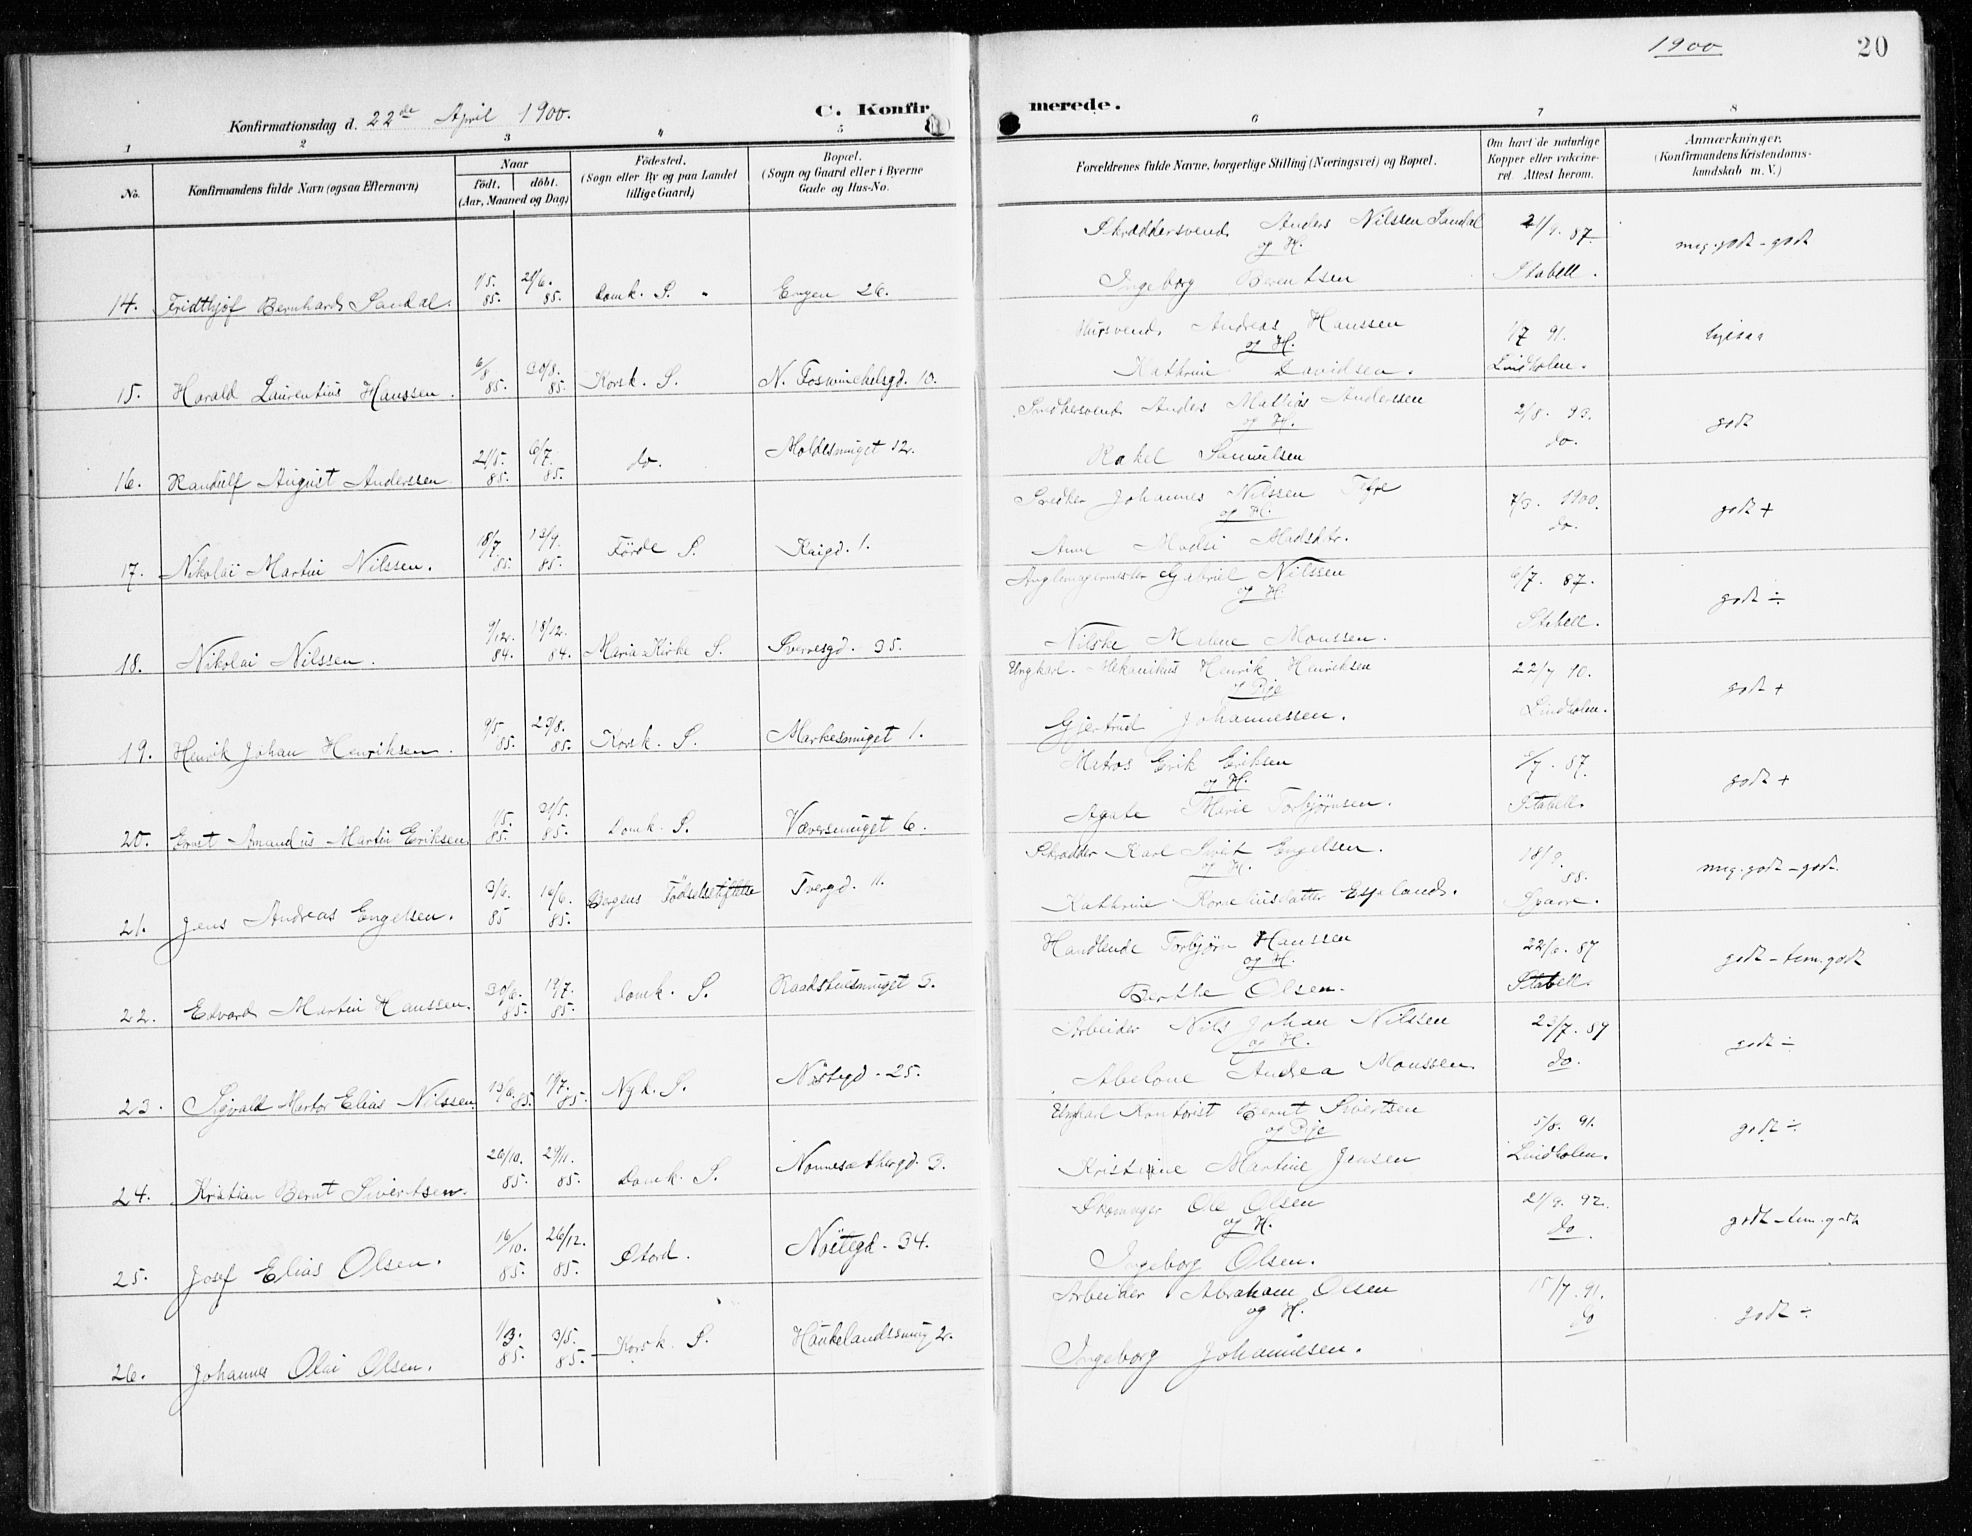 1900
20
Konfirmationsdag d. 22de April 1900.
C. Konfirmerede.
1 2 3 4 5 6 7 8
No.
Konfirmandens fulde Navn (ogsaa Efternavn)
Naar
født. døbt.
(Aar, Maaned og Dag)
Fødested.
(Sogn eller By og paa Landet
tillige Gaard)
Bopæl.
(Sogn og Gaard eller i Byerne
Gade og Hus-No.
Forældrenes fulde Navne, borgerlige Stilling (Næringsvei) og Bopæl.
Om havt de naturlige
Kopper eller vakcine-
ret. Attest herom.
Anmærkninger.
(Konfirmandens Kristendoms-
kundskab m. V.)
Skræddersvend Anders Nilssen Sandal
og H.
Ingeborg Berentsen
87. Stabell.
meg. godt - godt
14. Fridthjof Bernhard Sandal. 1/5. 85. 85. Domk. S. Engen 26.
Andreas Hanssen
og H.
Kathrine Davidsen.
91. Lindholm.
15. Harald Laurentius Hanssen. 6/8 85. 30/8. 85. Korsk. S. 10.
Anders Mathias Anderssen
og H.
Rakel Samuelsen
2/8. 93. do.
godt
16. Randulf August Anderssen 21/5. 85. 6/7. 85. do. Moldesmuget 12.
Johannes Nilssen
og H.
Anne Madsdtr.
7/3. 1900. do.
godt +
17. Nikolai Martin Nilssen. 18/7 85. 85. Førde S. Kaigd. 1.
Gabriel Nilssen
og H.
Malene Monssen.
6/7. 87. Stabell.
godt ÷
18. Nikolai Nilssen. 9/12. 84. 18/12. 84. Maria Kirke S. Sverresgd. 35.
Ungkarl. Mekanikus Henrik Henriksen
og Pige
Gjertrud Johannessen.
22/7 10. Lindholm.
godt +
19. Henrik Johan Henriksen. 9/5 85. 23/8. 85. Korsk. S. Markesmuget 1.
Matros Erik Eriksen
og H.
Agate Marie Torbjørnsen.
87. Stabell.
godt +
20. Ernst Amandus Martin Eriksen. 1/5. 85. 31/5. 85. Domk. S. Væversmuget 6.
Skrædder Karl Sivert Engelsen.
og H.
Kathrine Korneliusdatter Espeland.
18/9. 88. Sparre.
meg. godt - godt.
21. Jens Andreas Engelsen. 3/6. 85 85. Bergens Fødselsstiftelse Tvergd. 11.
Handlende Torbjørn Hanssen
og H.
Berthe Olsen.
87 Stabell.
godt - tem. godt
22. Edvard Martin Hanssen. 30/6. 85. 19/7. 85. Domk. S. Raadstuesmuget 3.
Arbeider Nils Johan Nilssen
og H.
Abelone Andrea Monssen.
23/7. 89 do.
godt ÷
23. Sigvald Elias Nilssen. 85. 85. Nyk. S. Nøstegd. 25.
Ungkarl Kontorist Bernt Sivertsen
og Pige
Kristine Martine Jensen
5/8. 91. Lindholm.
godt ÷
24. Kristian Bernt Sivertsen. 20/10. 85. 29/11. 85. Domk. S. Nonnesætergd. 3.
Skomager Ole Olsen
og H.
Ingeborg Olsen.
21/9. 92. do.
godt - tem. godt
25. Josef Elias Olsen. 16/10. 85. 26/12. 85. Stord. Nøstegd. 34.
Arbeider Abraham Olsen
og H.
Ingeborg Johannesen.
15/7. 91. do
godt ÷
26. Johannes Olai Olsen. 1/3. 85. 3/5. 85. Korsk. S. Haukelandssmug 2.